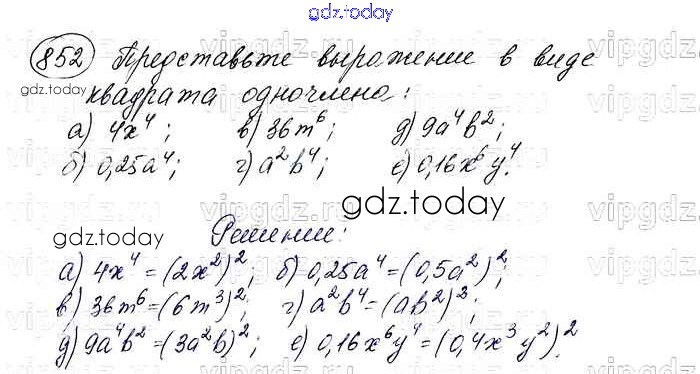 gdz.today
852 Представьте выражение в виде
gdz.today
квадрата одночлена:
а) 4x⁴; в) 36m⁶; д) 9a⁴b²;
б) 0,25a⁴; г) a²b⁴; е) 0,16x⁶y⁴.
gdz.today
Решение:
gdz.today
а) 4x⁴=(2x²)²; б) 0,25a⁴=(0,5a²)²;
в) 36m⁶=(6m³)²; г) a²b⁴=(ab²)²;
д) 9a⁴b²=(3a²b)²; е) 0,16x⁶y⁴=(0,4x³y²)².